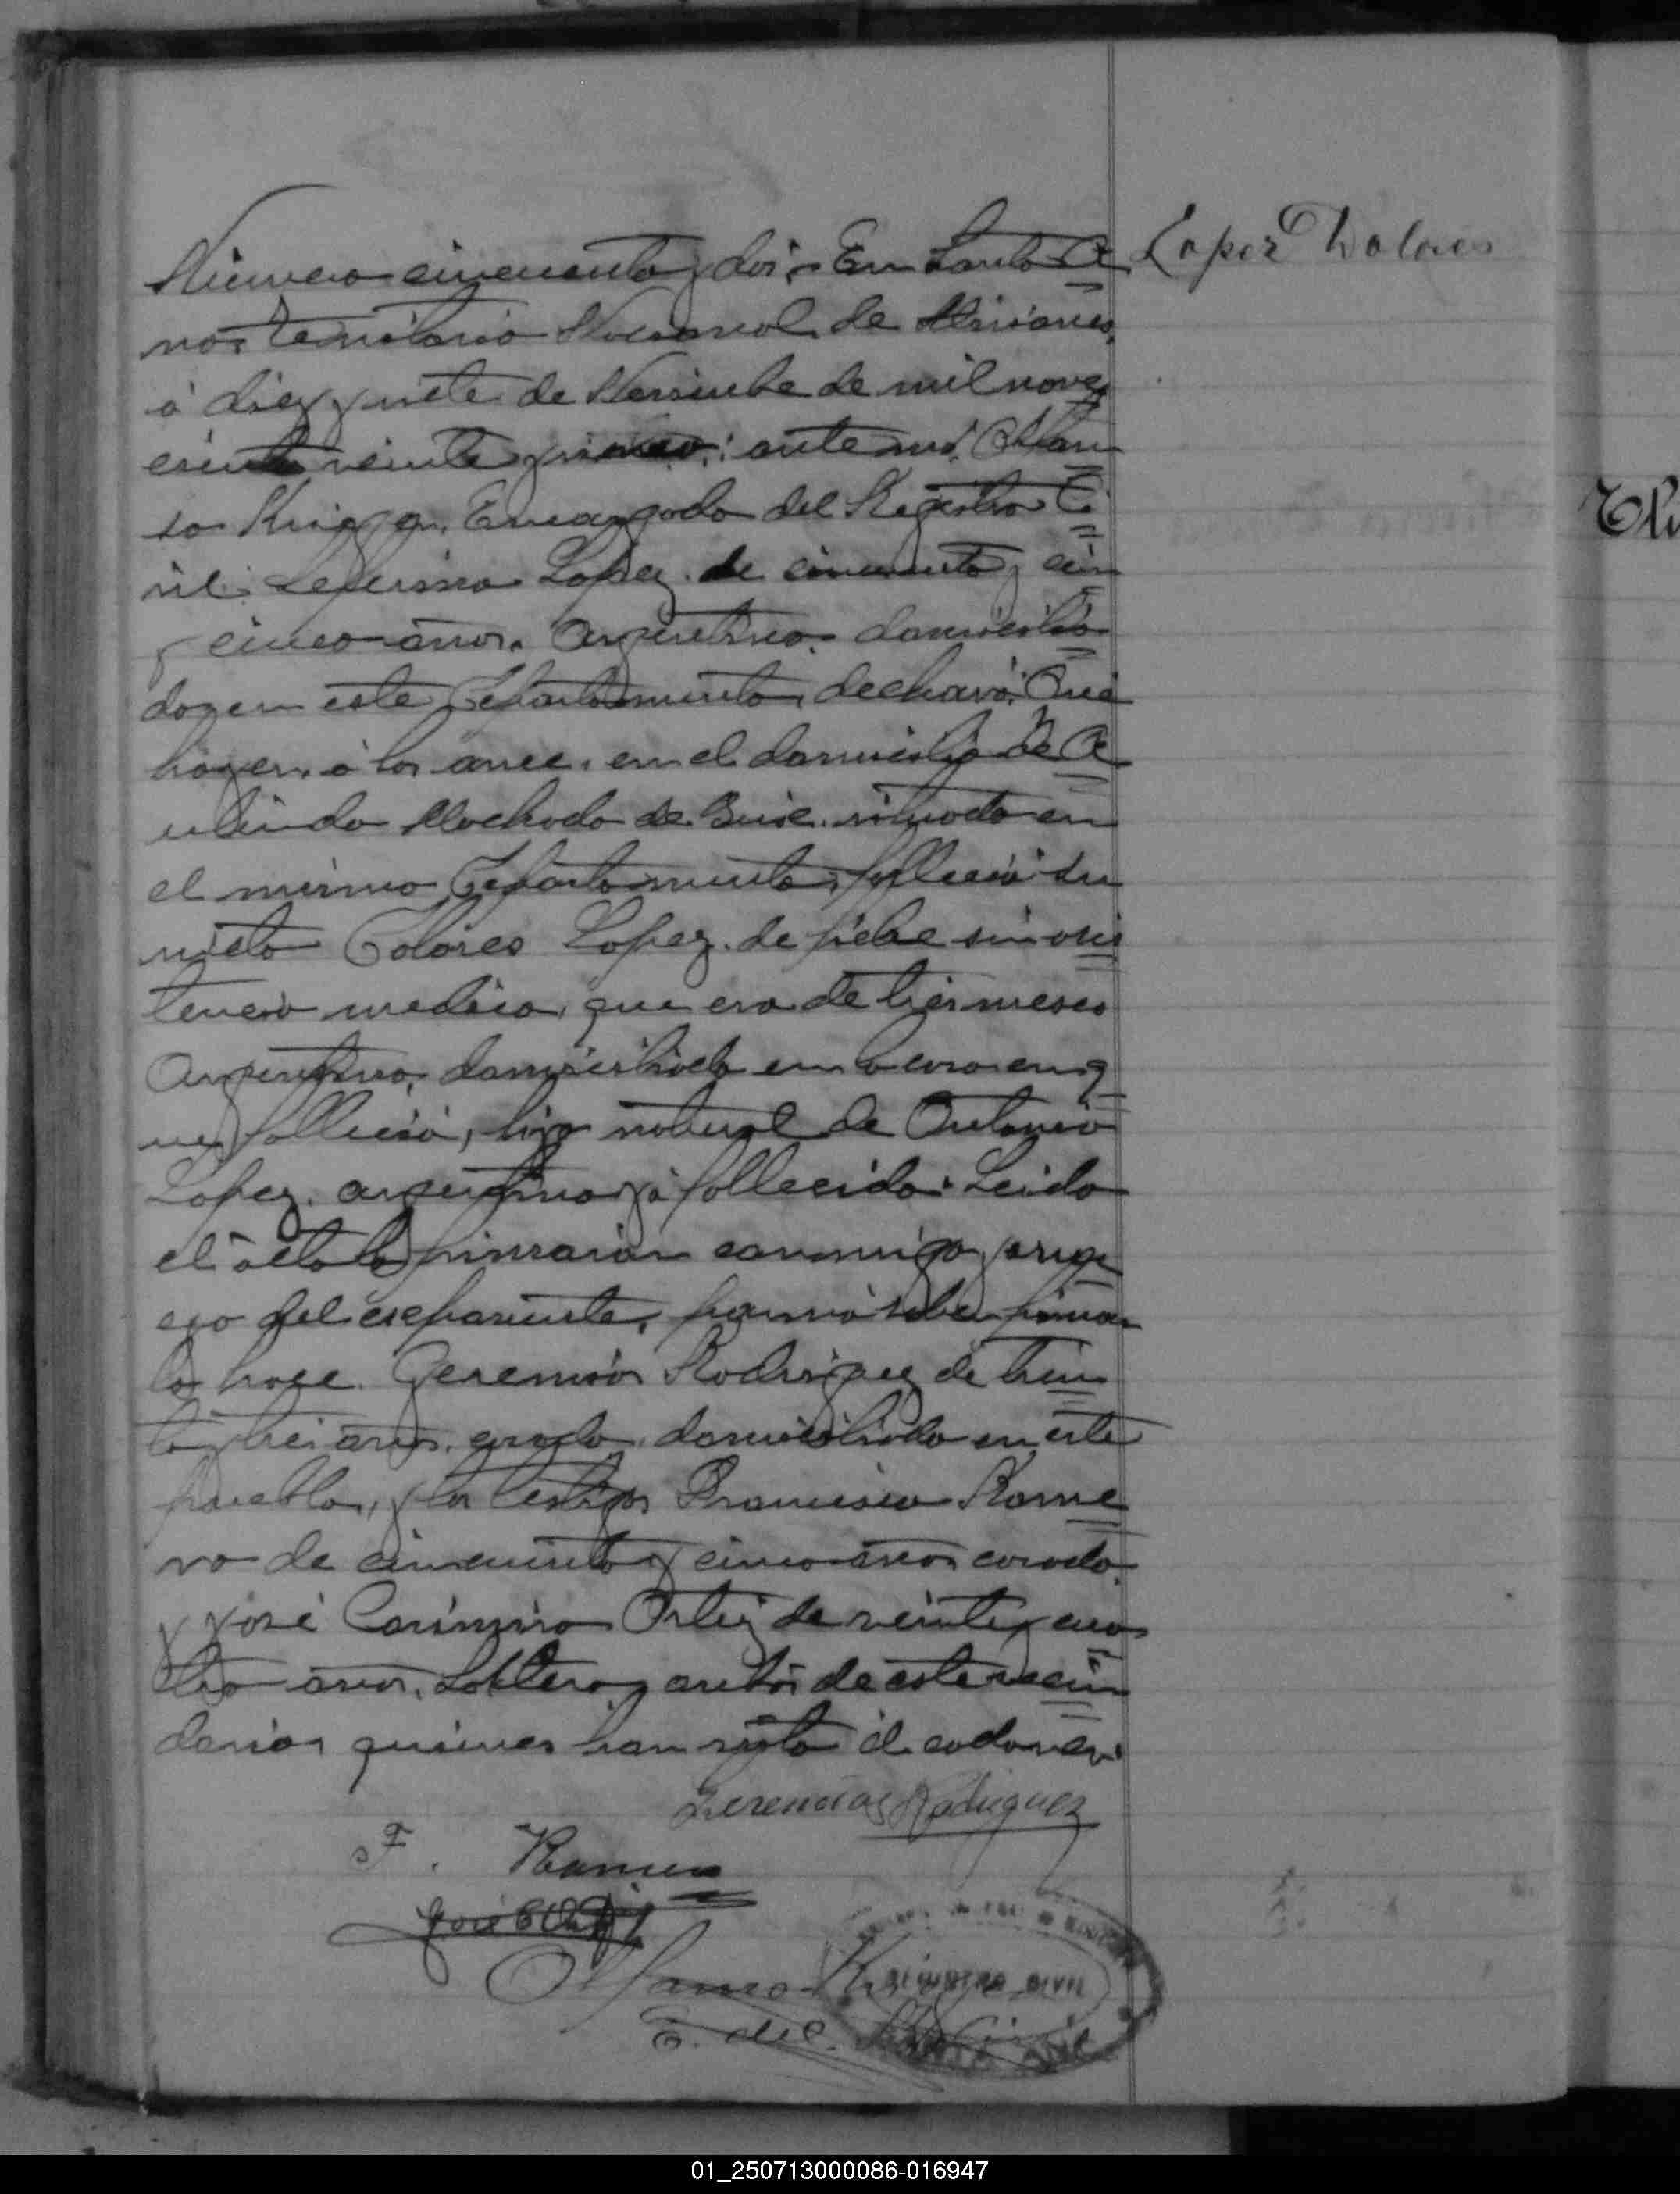 Lopez Dolores
Número cincuenta y dos. En Santa A
na, Territorio Nacional de Misiones,
á diez y siete de de mil nove
cientos veinte y ante mí, Alfon
so Encargado del Registro Ci
vil Lopez de cincuenta y cin
y cinco años, Argentino, domicilia
do en este Departamento, declaró: Que
hoy á las once, en el domicilio de A
Machado de situado en
el mismo Departamento, falleció su
nieta Dolores Lopez de fiebre sin asis
tencia medica, que era de tres meses
Argentina, domiciliada en la casa en q
ue falleció, hija natural de Antonia
Lopez, argentina ya fallecida. Leida
el acta la firmaron conmigo, y a rue
go del exponente, por no saber firmar
lo hace Geremias Rodriguez de trein
ta y tres años, casado, domiciliado en este
pueblo, y los testigos Francisco Rome
ro de cincuenta y cinco años, casado
y José Casimiro Ortiz de veinte y cua
tro años, soltero, ambos de este vecin
dario, quienes han visto el cadaver.
Geremias Rodriguez
F. Romero
José C Ortiz
Alfonso
E. del R. Civil
REGISTRO CIVIL
01_250713000086-016947